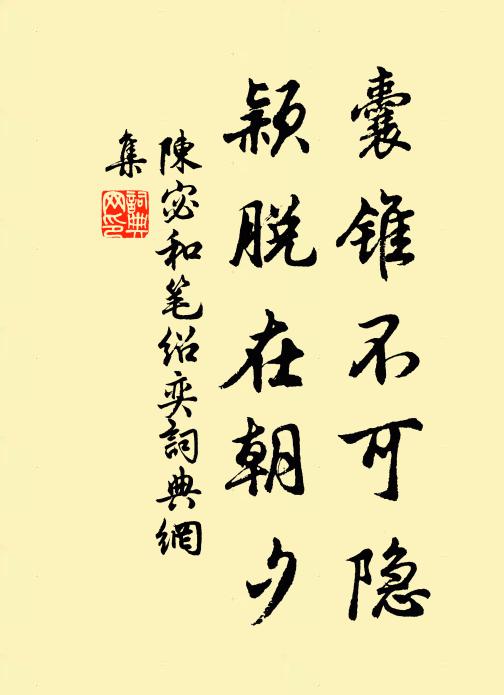 囊锥不可隐
颖脱在朝夕
陳宓和笔绍奕詞典網
集
詞典
网印